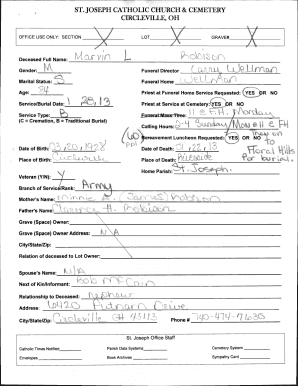 ST. JOSEPH CATHOLIC CHURCH & CEMETERY
CIRCLEVILLE, OH
OFFICE USE ONLY: SECTION X LOT X GRAVE# X
Deceased Full Name: Marvin L Robison
Gender: M Funeral Director: Larry Wellman
Marital Status: S Funeral Home: Wellman
Age: 84 Priest at Funeral Home Service Requested: YES OR NO
Service/Burial Date: 1, 28, 13 Priest at Service at Cemetery: YES OR NO
Service Type: B Funeral Mass Time: 11 @ F.H. Monday
(C = Cremation, B = Traditional Burial) Calling Hours: 2-4 Sunday/Mon @ 11 @ FH
(60 ppl) Bereavement Luncheon Requested: YES OR NO Then on to
Date of Birth: 03,20,1928 Date of Death: 01,22,13 Floral Hills
Place of Birth: Circleville Place of Death: Riverside for burial.
Veteran (Y/N): Y Home Parish: St. Joseph
Branch of Service/Rank: Army
Mother's Name: Minnie A. (James) Robison
Father's Name: Clarence H. Robison
Grave (Space) Owner:
Grave (Space) Owner Address: N/A
City/State/Zip:
Relation of deceased to Lot Owner:
Spouse's Name: N/A
Next of Kin/Informant: Bob McCain
Relationship to Deceased: nephew
Address: 6420 Putnam Drive
City/State/Zip: Circleville OH 43113 Phone # 740-474-7630
St. Joseph Office Staff
Catholic Times Notified Parish Data Systems Cemetery System
Envelopes Book Archives Sympathy Card